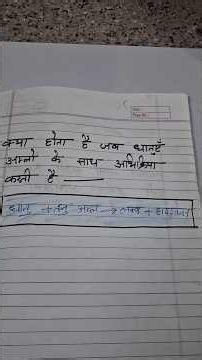 क्या होता है जब धातुएँ
अम्लो के साथ अभिक्रिया
करती है
धातु + तनु अम्ल → लवण + हाइड्रोजन